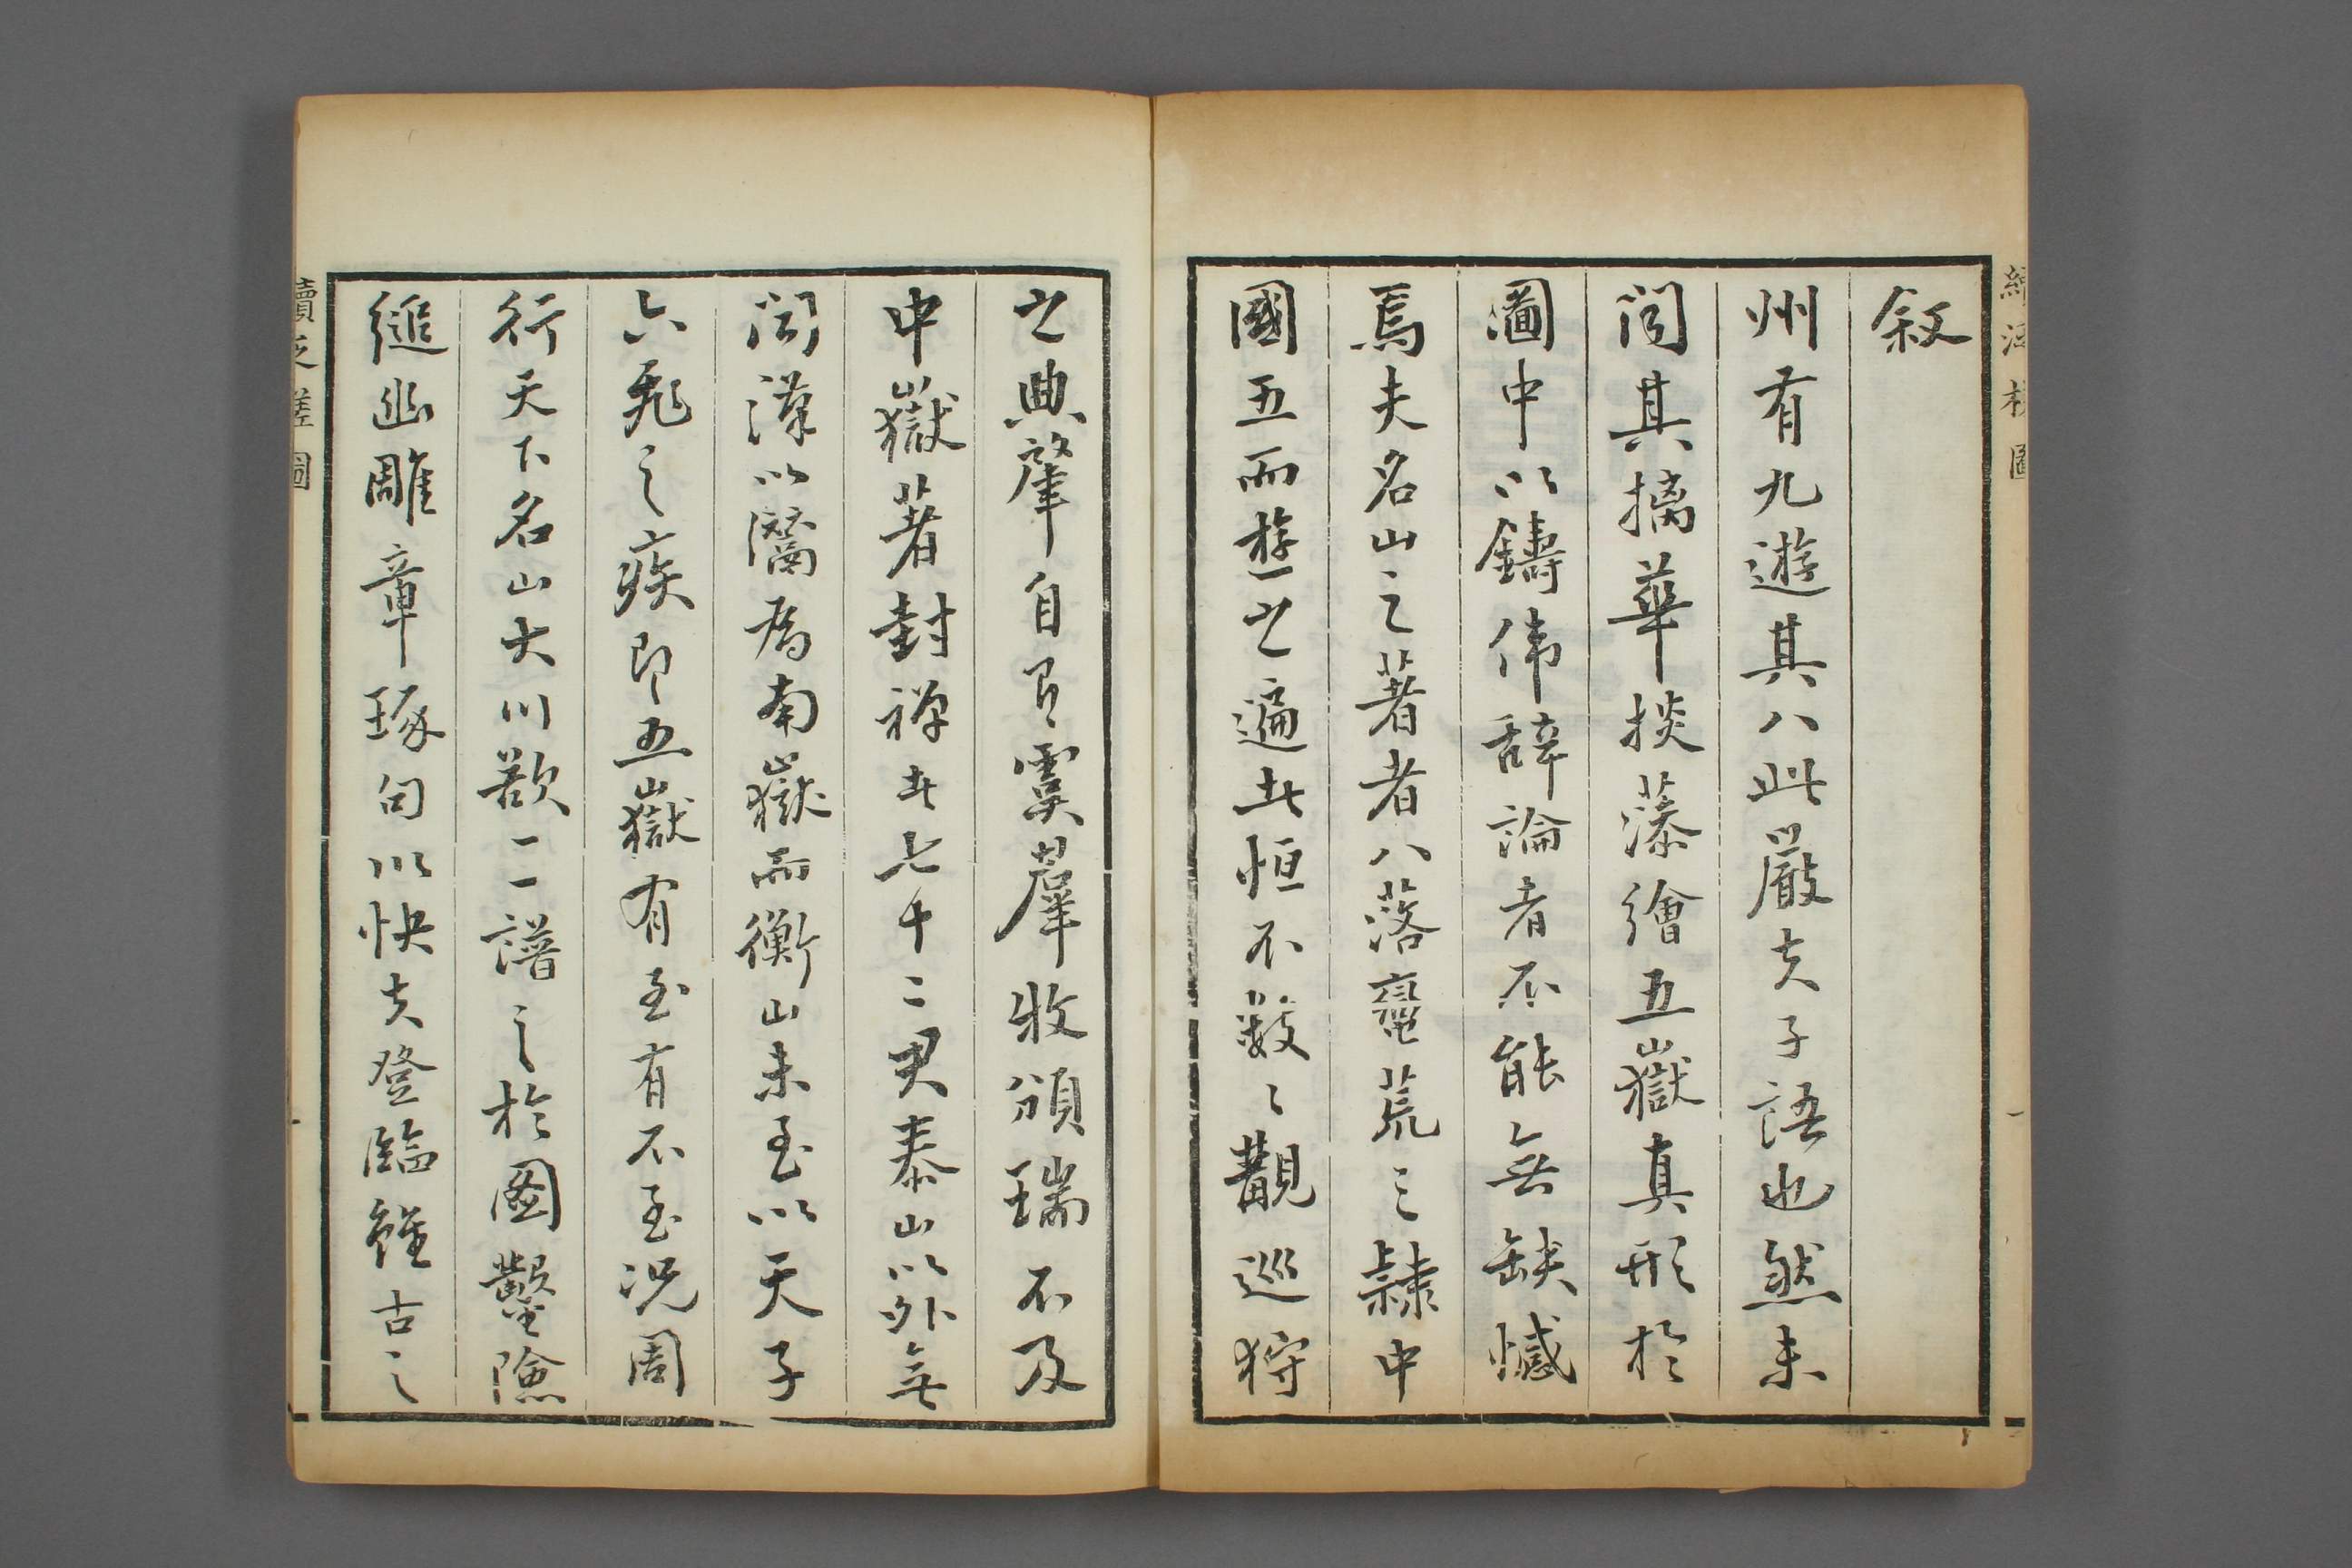 叙
州有九遊其八此嚴夫子語也然未
聞其摛華掞藻繪五嶽真形於
圖中以鑄偉辭論者不能無缺憾
焉夫名山之著者八落蠻荒三隸中
國五而遊之遍其恒不數〻觀巡狩
之典肇自有虞羣牧頒瑞不及
中嶽著封禪其七十二君泰山以外無
聞漢以灊為南嶽而衡山未至以天子
六飛之疾即五嶽有至有不至況周
行天下名山大川歌一一譜之於圖鑿險
縋幽雕章琢句以快夫登臨雖古之
續泛槎圖
一
續泛槎圖
一